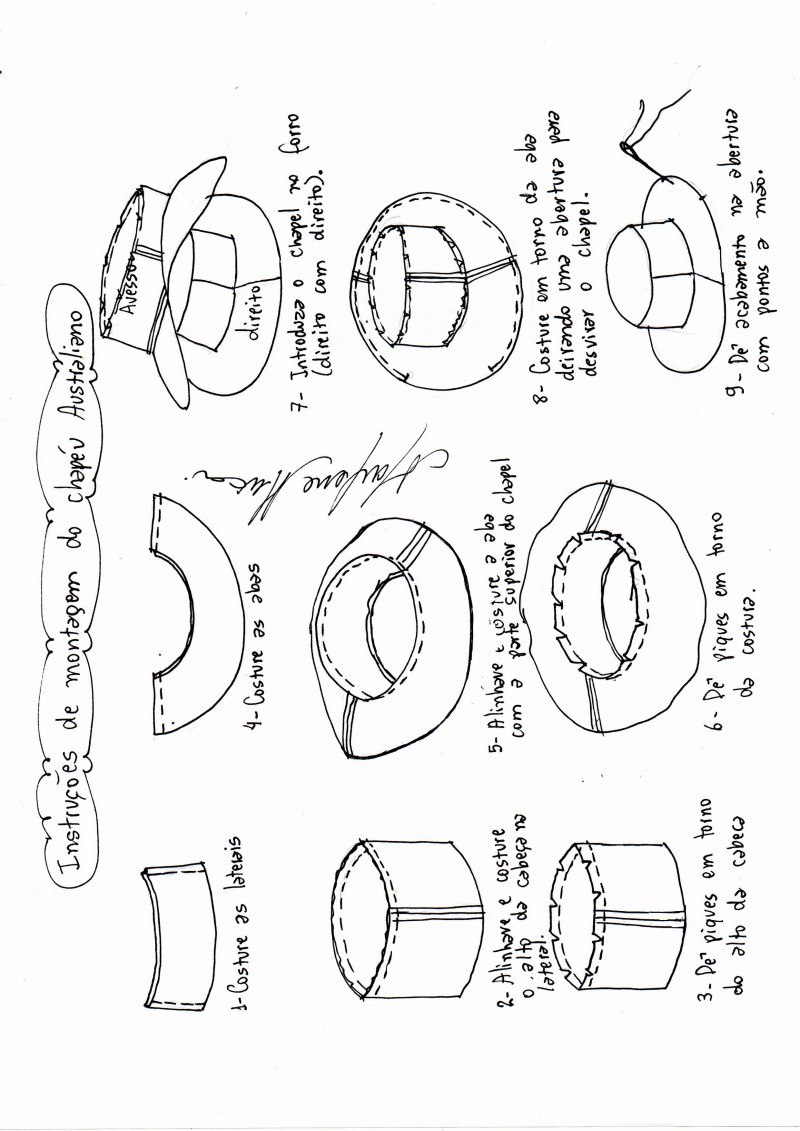 Instruções de montagem do chapéu Australiano
1- Costure as laterais
2- Alinhave e costure
o alto da cabeça na
lateral.
3- Dê piques em torno
do alto da cabeça
4- Costure as abas
5- Alinhave e costure a aba
com a parte superior do chapel
6- Dê piques em torno
da costura.
Avesso
direito
7- Introduza o chapel no forro
(direito com direito).
8- Costure em torno da aba
deixando uma abertura para
desvirar o chapel.
9- Dê acabamento na abertura
com pontos a mão.